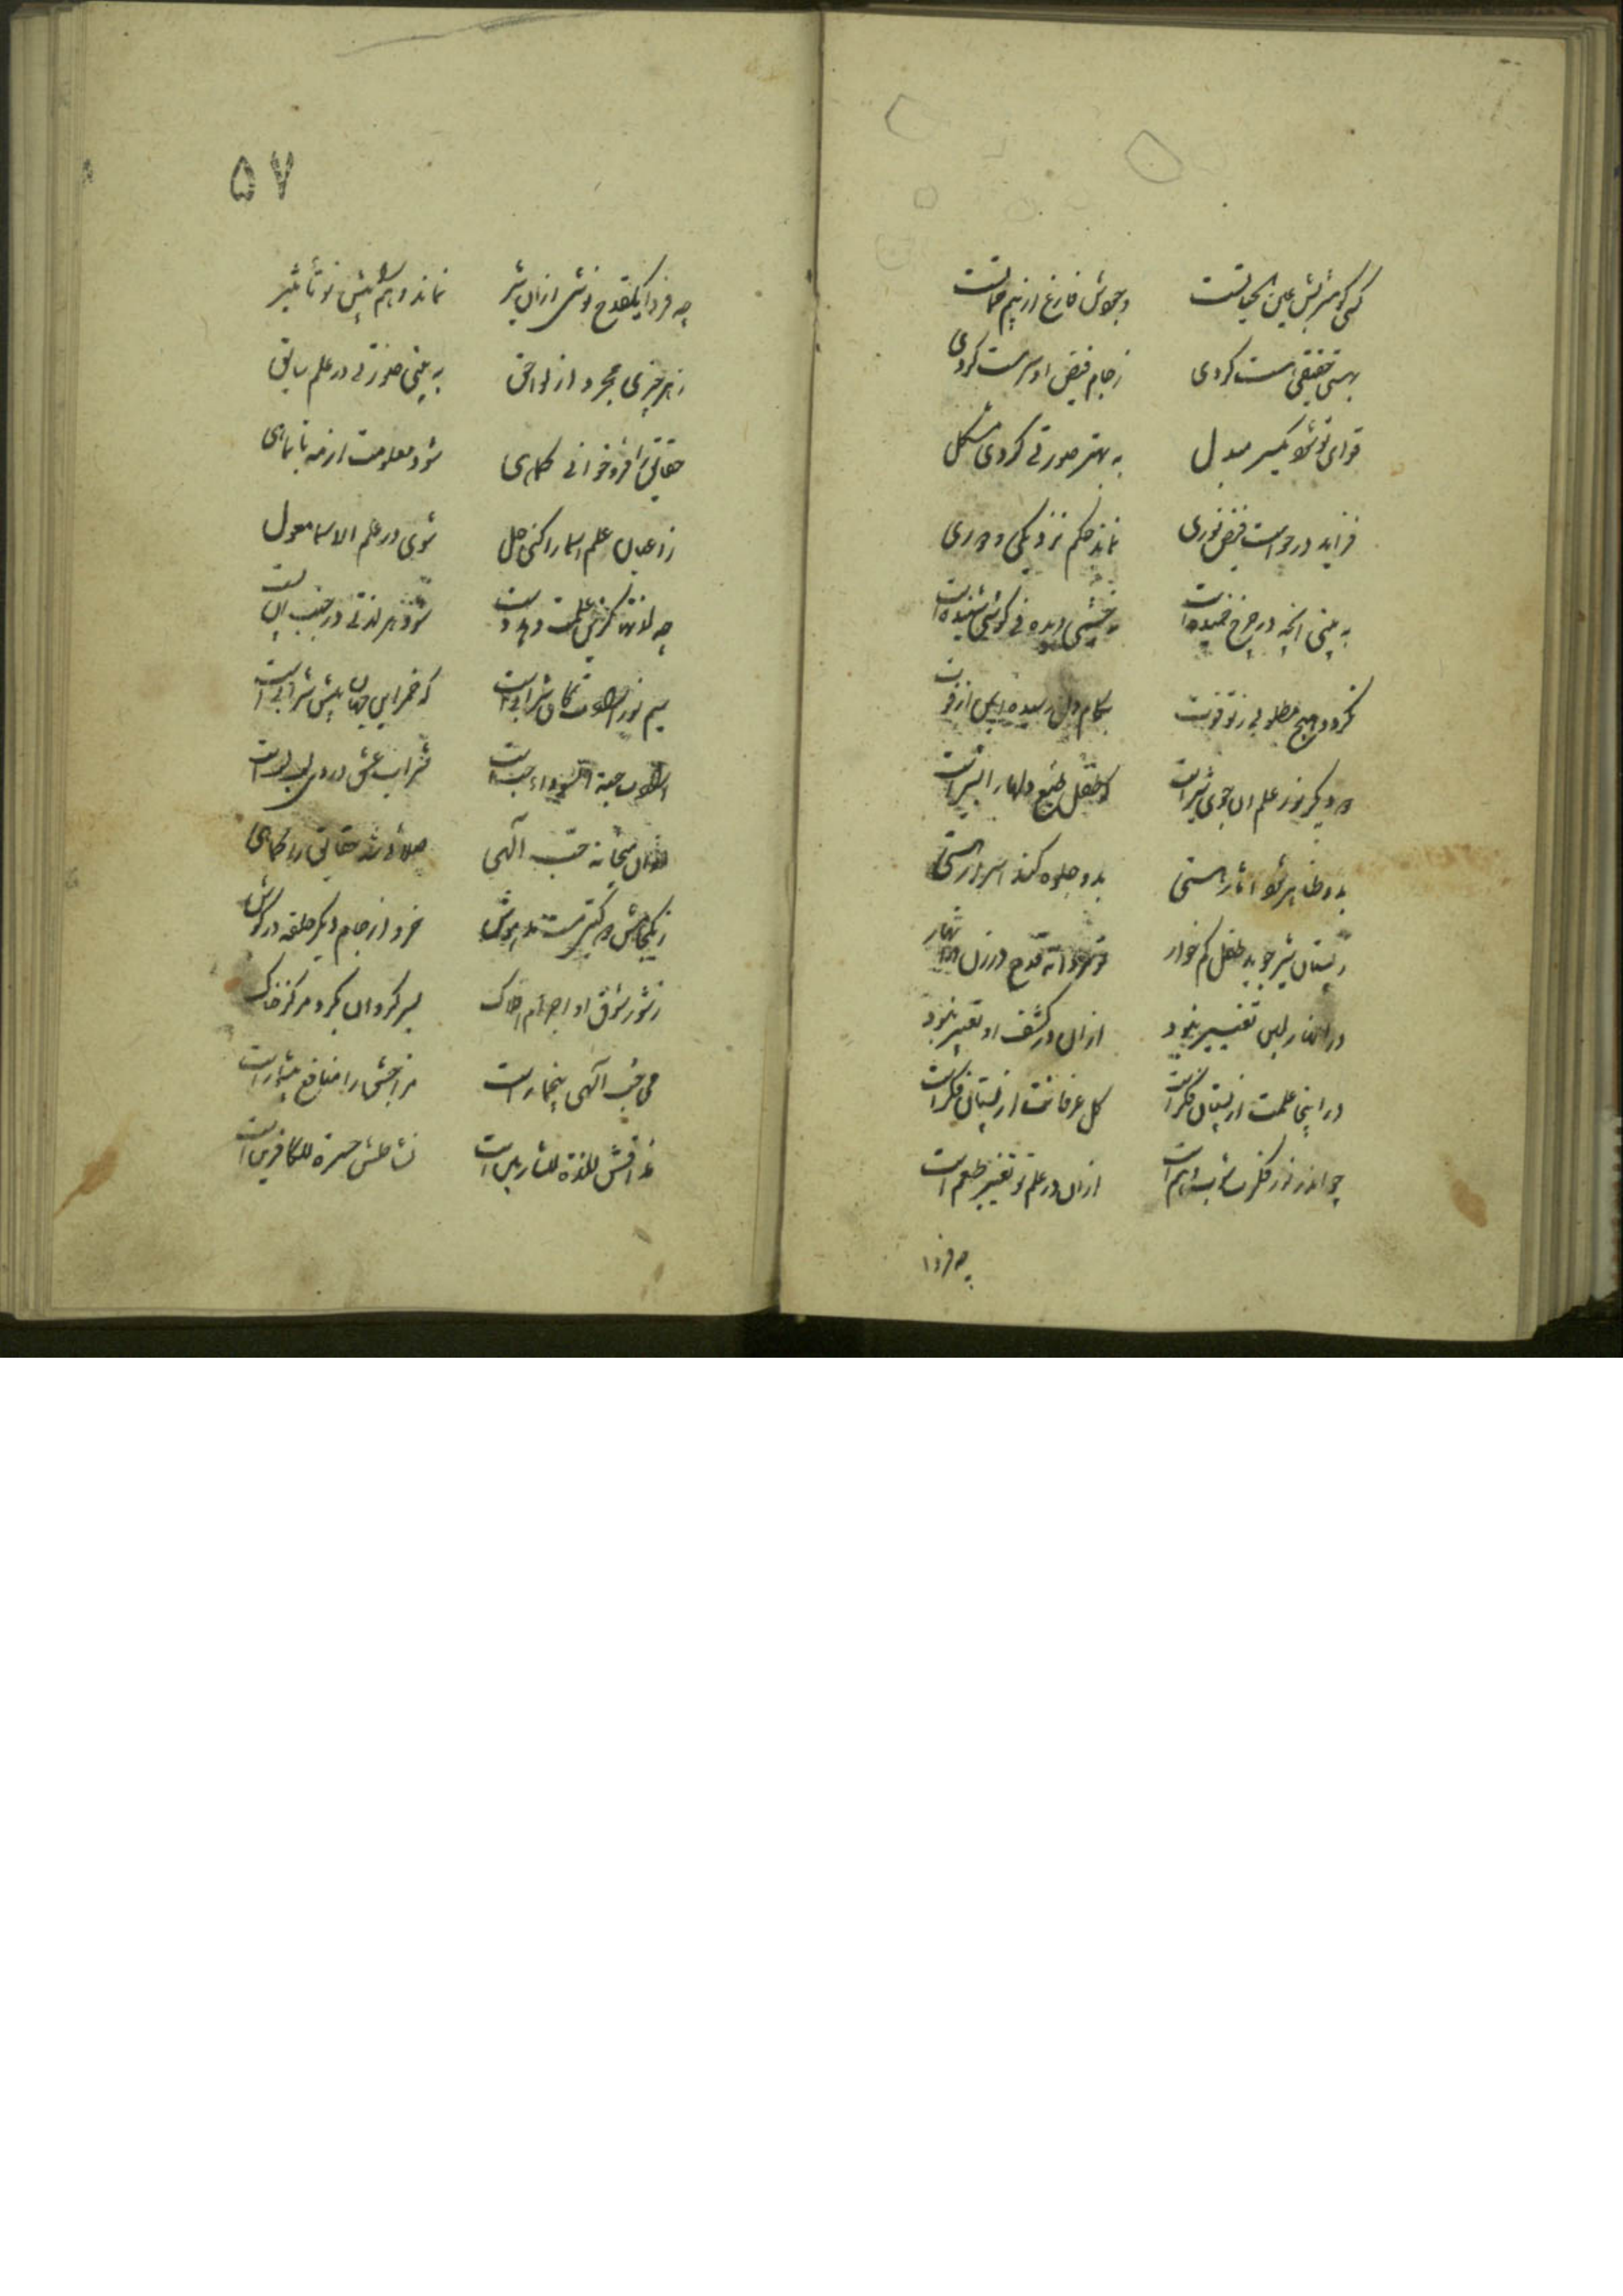 کسی کو شربش عین الحیاتست وجودش فارغ از بیم مماتست
بهستی حقیقی هست کردی ز جام فیض او سرمست کردی
قوای تو شود یکسر مبدل به بهتر صورتی کردی مشکل
فزاید در حواست فیض نوری نماند حکم نزدیکی و دوری
به بینی انچه در چرخ خمیده است نه چشمی دیده نی کوشی شنیده است
نکردد هیچ مطلوبی ز تو فوت بکام دل رسیده ایمن از فوت
دکر نوز علم ان جوی شیر است که طفل طبع دلها را است
بدو ظاهر شود اثار هستی بدو جلوه کند اسرار هستی
ز پستان شیر جوید طفل کم خوار تو قدح در زن
در انهار لبن تغییر نبود از ان در کشف او تعبیر نبود
در اینجا علمت از پستان فکر است کل عرفانت از بستان فکر است
چو اندر نوز فکرت شوب وهم است از ان در علم تو تغییر طعم است
چه فردا
۵۷
چه فردا یکقدح نوشی از ان شیر نماند وهم را پیش تو تأثیر
ز هر چیزی مجرد از لواحق به بینی صورتی در علم سابق
حقایق را فرو خوانی کماهی شود معلومت از مه تا بماهی
ز اعیان علم اسما را کنی حل شوی در علم الاسما معول
چه لذتها کزین علمت دهد دست شود هر لذتی در جنب ان پست
سیم نوز شرابی است که خمر این جهان پیشش سرابی است
حبة السوداء حب است شراب عشق در وی لب بلب است
از ان میخانه حب آلهی حقایق را کماهی
ز یکجامش دو کیتی مست و مدهوش خرد از جام دیکر حلقه در کوش
ز شور شوق او اجرام افلاک بسر کردان بکرد مرکز خاک
می حب آلهی بیخمار است مزاجش را منافع بیشمار است
مذاقش لذة للشاربین است نشاطش حسرة للکافرین است